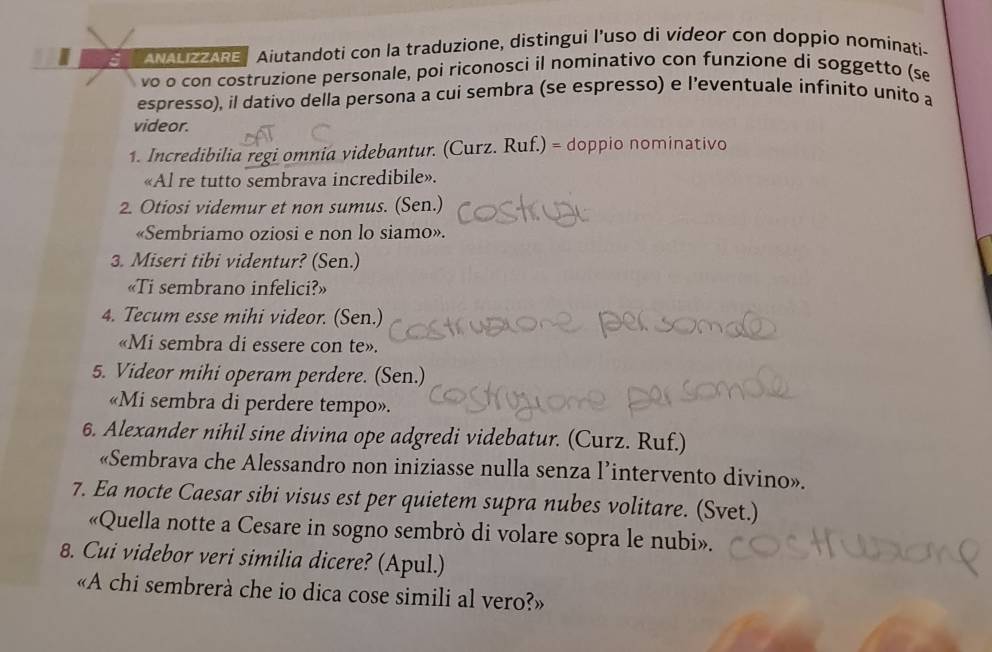 5 ANALIZZARE Aiutandoti con la traduzione, distingui l'uso di videor con doppio nominati-
vo o con costruzione personale, poi riconosci il nominativo con funzione di soggetto (se
espresso), il dativo della persona a cui sembra (se espresso) e l'eventuale infinito unito a
videor.
DAT S
1. Incredibilia regi omnia videbantur. (Curz. Ruf.) = doppio nominativo
«Al re tutto sembrava incredibile».
2. Otiosi videmur et non sumus. (Sen.)
«Sembriamo oziosi e non lo siamo».
3. Miseri tibi videntur? (Sen.)
«Ti sembrano infelici?»
4. Tecum esse mihi videor. (Sen.) costruzione personale
«Mi sembra di essere con te».
5. Videor mihi operam perdere. (Sen.)
«Mi sembra di perdere tempo». costruzione personale
6. Alexander nihil sine divina ope adgredi videbatur. (Curz. Ruf.)
«Sembrava che Alessandro non iniziasse nulla senza l'intervento divino».
7. Ea nocte Caesar sibi visus est per quietem supra nubes volitare. (Svet.)
«Quella notte a Cesare in sogno sembrò di volare sopra le nubi». costruzione
8. Cui videbor veri similia dicere? (Apul.)
«A chi sembrerà che io dica cose simili al vero?»